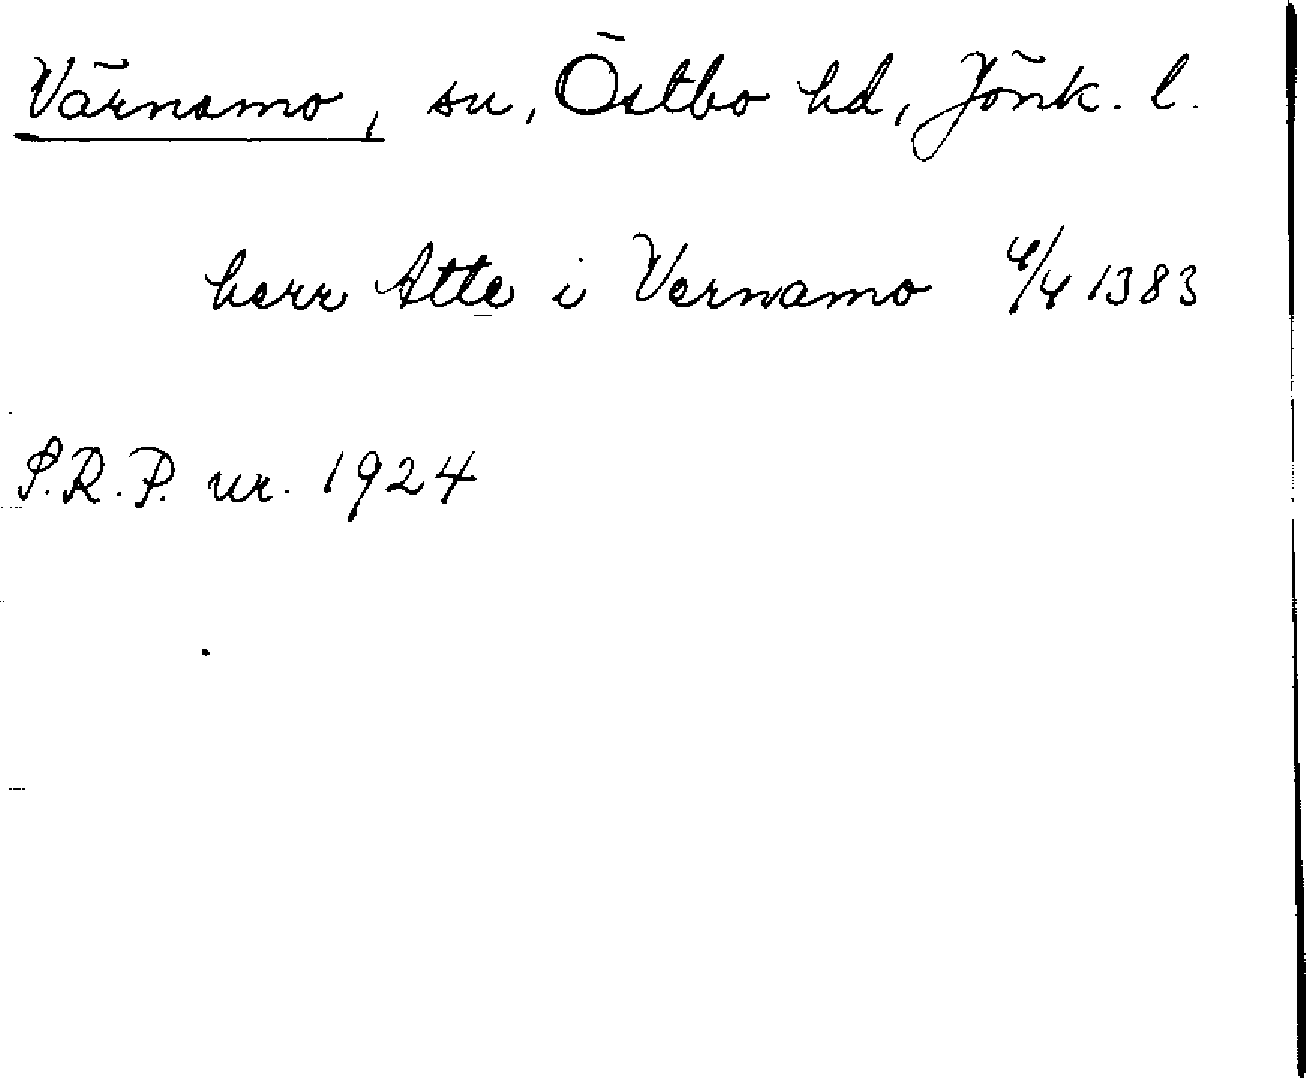 Värnamo, sn, Östbo hd, Jönk. l.
herr Atte i Vernamo 4/4 1383
S.R.P. nr. 1924